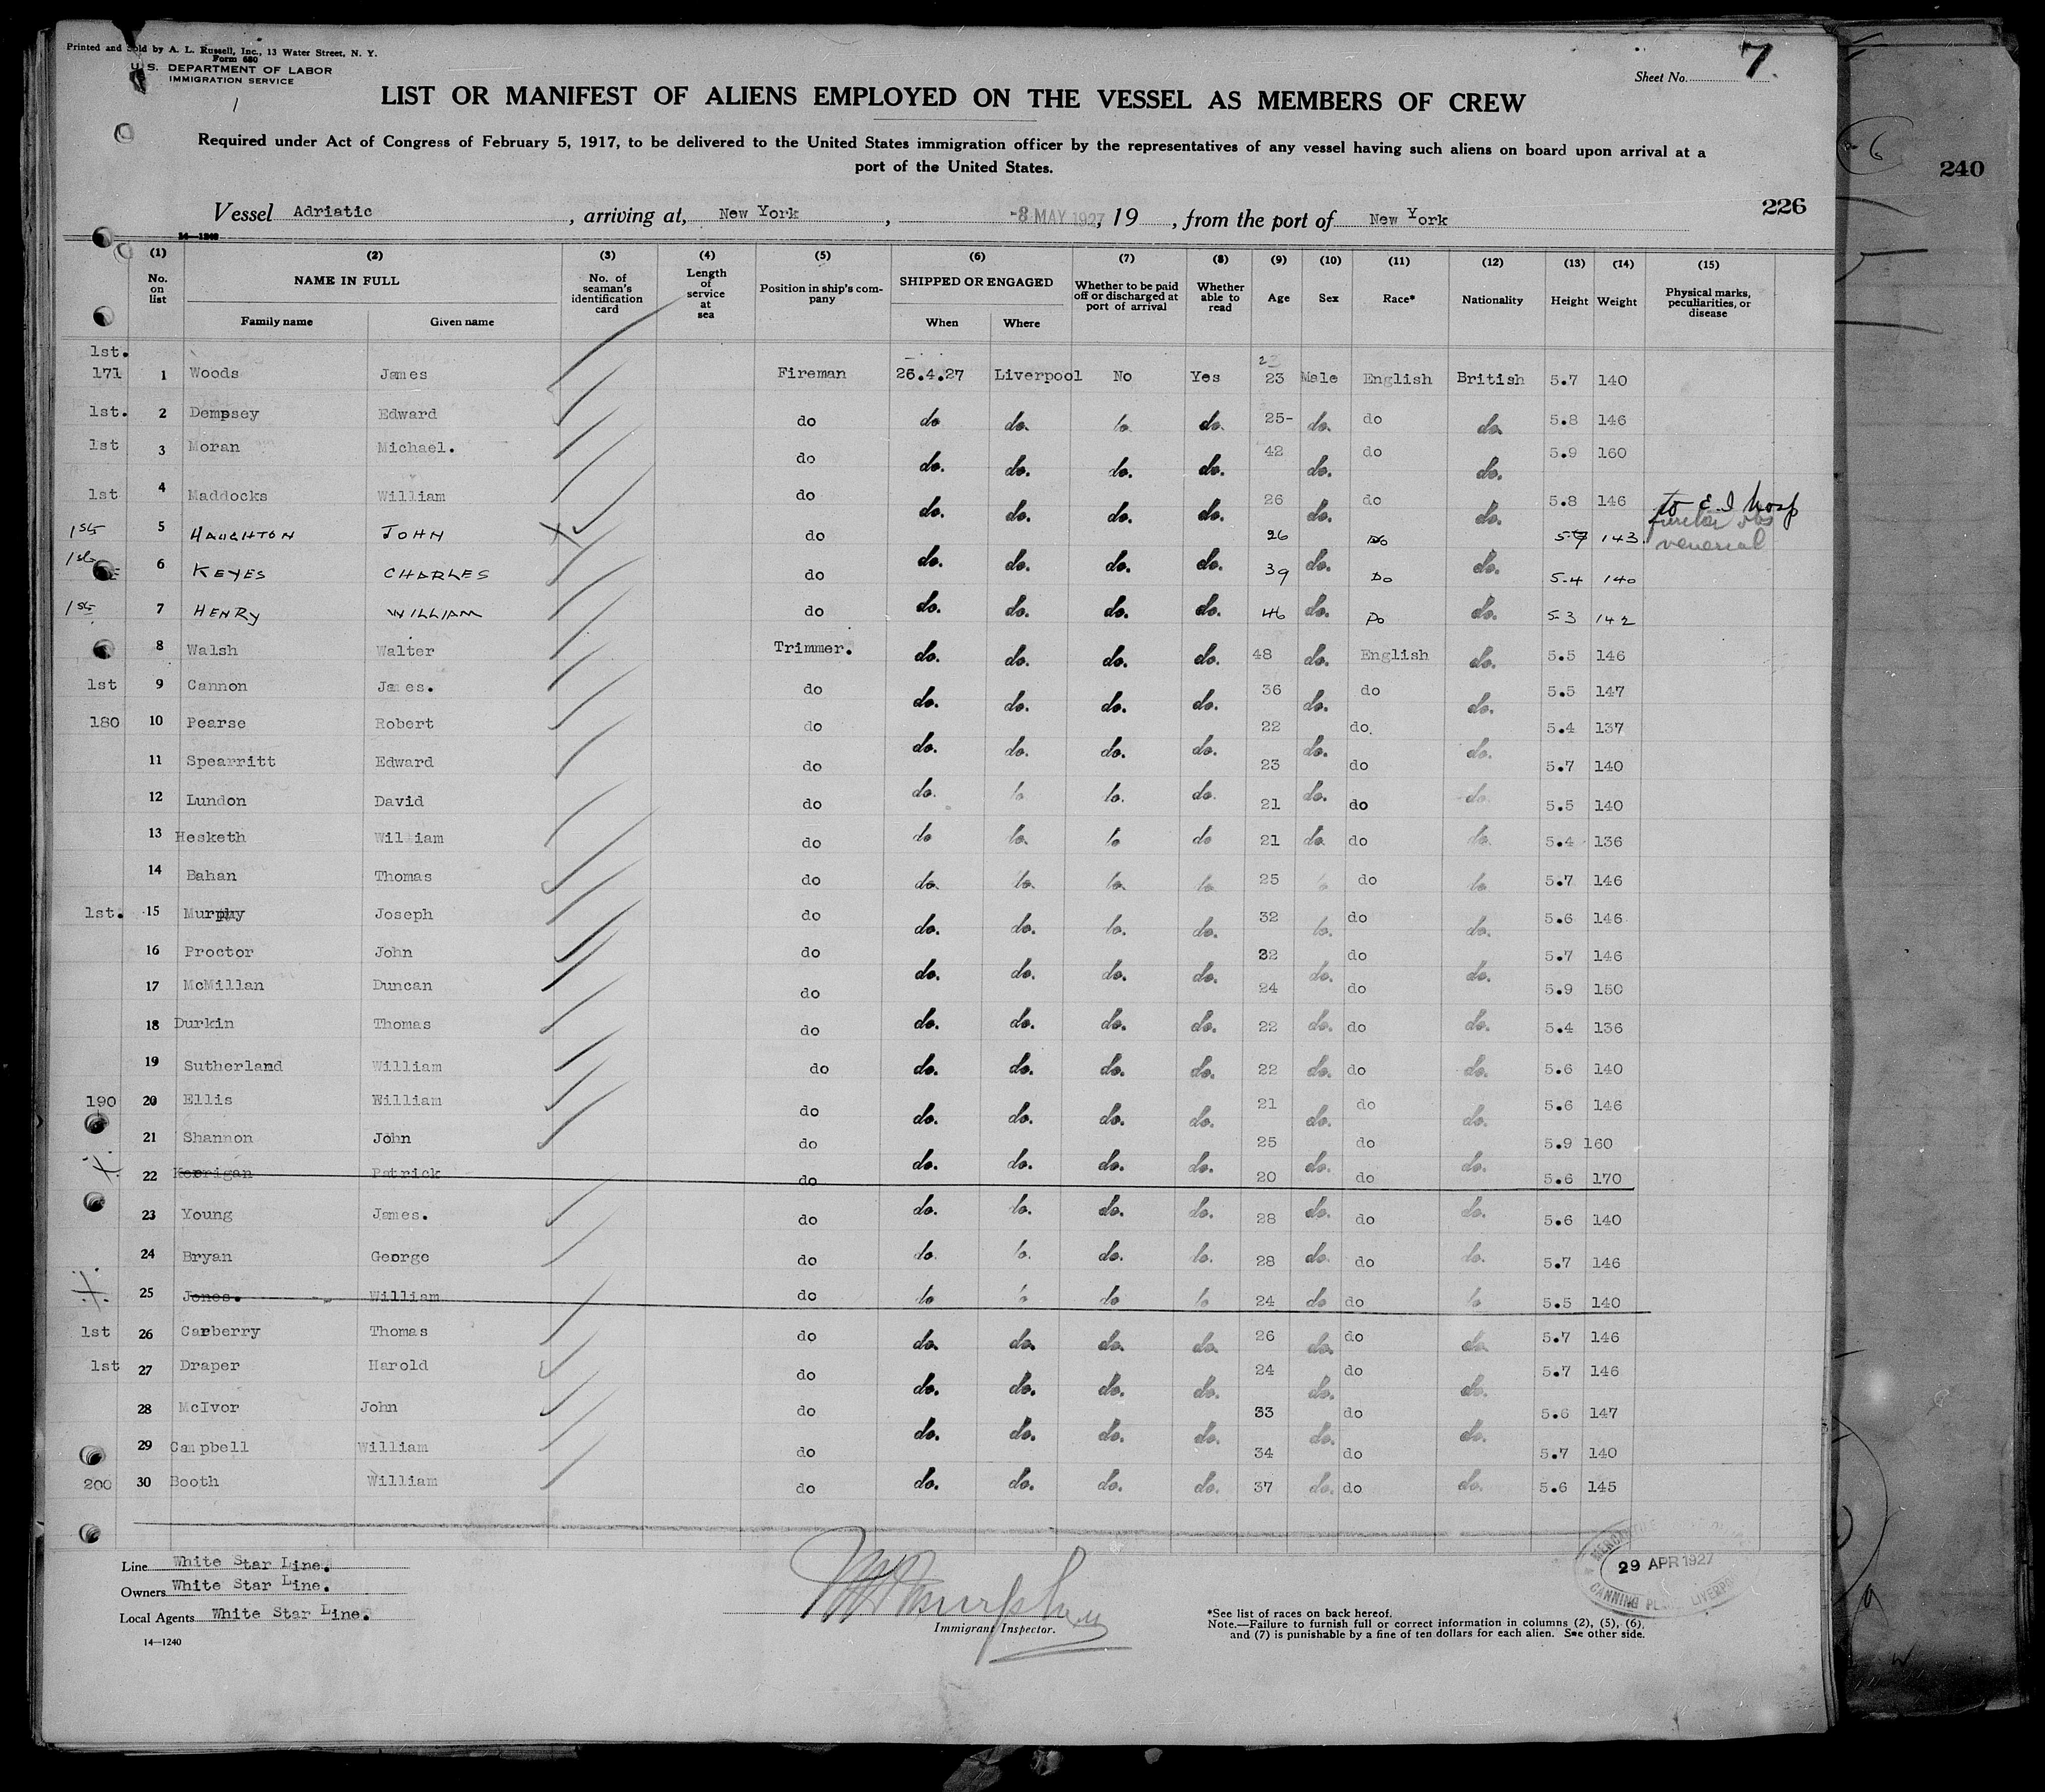 Printed and Sold by A. L. Russell, Inc., 13 Water Street, N. Y.
Form 680
U. S. DEPARTMENT OF LABOR
IMMIGRATION SERVICE
Sheet No. 7.
LIST OR MANIFEST OF ALIENS EMPLOYED ON THE VESSEL AS MEMBERS OF CREW
Required under Act of Congress of February 5, 1917, to be delivered to the United States immigration officer by the representatives of any vessel having such aliens on board upon arrival at a
port of the United States.
240
226
Vessel Adriatic, arriving at, New York, -8 MAY 1927, 19, from the port of New York
14-1240
(1) (2) (3) (4) (5) (6) (7) (8) (9) (10) (11) (12) (13) (14) (15)
No. on list NAME IN FULL Family name Given name No. of seaman's identification card Length of service at sea Position in ship's company SHIPPED OR ENGAGED When Where Whether to be paid off or discharged at port of arrival Whether able to read Age Sex Race* Nationality Height Weight Physical marks, peculiarities, or disease
1st. 171 1 Woods James Fireman 26.4.27 Liverpool No Yes 23 Male English British 5.7 140
1st. 2 Dempsey Edward do do do. do. do. 25- do. do do. 5.8 146
1st 3 Moran Michael. do do. do. do. do. 42 do. do do. 5.9 160
1st 4 Maddocks William do do. do. do. do. 26 do. do do. 5.8 146 to E I hosp
1st 5 HAUGHTON JOHN do do. do. do. do. 26 do. Do do. 5-7 143 venereal
1st 6 KEYES CHARLES do do. do. do. do. 39 do. Do do. 5-4 140
1st 7 HENRY WILLIAM do do. do. do. do. 46 do. Do do. 5-3 142
8 Walsh Walter Trimmer. do. do. do. do. 48 do. English do. 5.5 146
1st 9 Cannon James. do do. do. do. do. 36 do. do do. 5.5 147
180 10 Pearse Robert do do. do. do. do. 22 do. do. do. 5.4 137
11 Spearritt Edward do do. do. do. do. 23 do. do do. 5.7 140
12 Lundon David do do. do. do. do. 21 do. do do. 5.5 140
13 Hesketh William do do do. do do 21 do. do do. 5.4 136
14 Bahan Thomas do do. do. do. do. 25 do do do 5.7 146
1st. 15 Murphy Joseph do do. do. do. do. 32 do. do do. 5.6 146
16 Proctor John do do. do. do. do. 32 do. do do. 5.7 146
17 McMillan Duncan do do. do. do. do. 24 do. do do. 5.9 150
18 Durkin Thomas do do. do. do. do. 22 do. do do. 5.4 136
19 Sutherland William do do. do. do. do. 22 do. do do. 5.6 140
190 20 Ellis William do do. do. do. do. 21 do. do do. 5.6 146
21 Shannon John do do. do. do. do. 25 do. do do. 5.9 160
22 Kerrigan Patrick do do. do. do. do. 20 do. do do. 5.6 170
23 Young James. do do. do. do. do. 28 do. do do. 5.6 140
24 Bryan George do do. do. do. do. 28 do. do do. 5.7 146
25 Jones. William do do do do do 24 do do do 5.5 140
1st 26 Carberry Thomas do do. do. do. do. 26 do. do do. 5.7 146
1st 27 Draper Harold do do. do. do. do. 24 do. do do. 5.7 146
28 McIvor John do do. do. do. do. 33 do. do do. 5.6 147
29 Campbell William do 34 do 5.7 140
200 30 Booth William do do. do. do. do. 37 do. do do. 5.6 145
Line White Star Line.
Owners White Star Line.
Local Agents White Star Line.
14-1240
Immigrant Inspector.
29 APR 1927
CANNING PLACE LIVERPOOL
*See list of races on back hereof.
Note.—Failure to furnish full or correct information in columns (2), (5), (6),
and (7) is punishable by a fine of ten dollars for each alien. See other side.